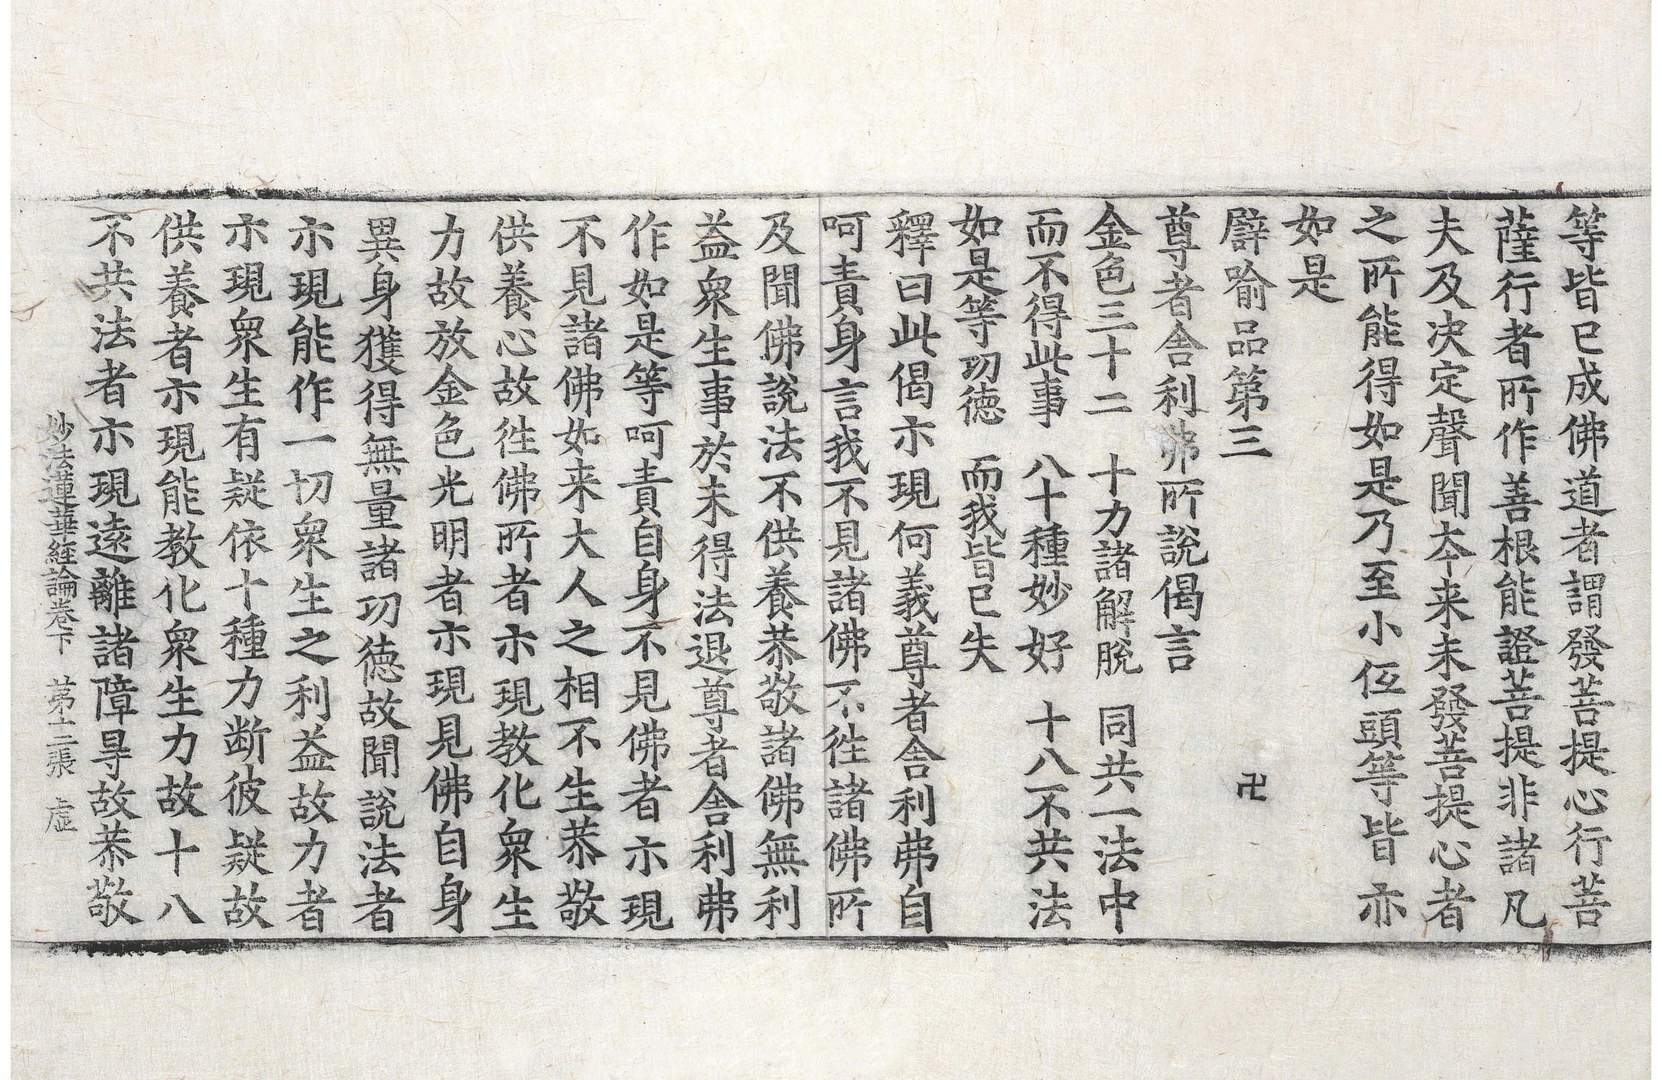 等皆已成佛道者謂發菩提心行菩
薩行者所作善根能證菩提非諸凡
夫及决定聲聞夲来未發菩提心者
之所能得如是乃至小伍頭等皆亦
如是
譬喻品第三 卍
尊者舍利弗所說偈言
金色三十二 十力諸解脫 同共一法中
而不得此事 八十種妙好 十八不共法
如是等功德 而我皆已失
釋曰此偈示現何義尊者舍利弗自
呵責身言我不見諸佛不徃諸佛所
及聞佛說法不供養恭敬諸佛無利
益衆生事於未得法退尊者舍利弗
作如是等呵責自身不見佛者示現
不見諸佛如来大人之相不生恭敬
供養心故徃佛所者示現教化衆生
力故放金色光明者示現見佛自身
異身獲得無量諸功德故聞說法者
示現能作一切衆生之利益故力者
示現衆生有疑依十種力断彼疑故
供養者示現能教化衆生力故十八
不共法者示現遠離諸障㝵故恭敬
妙法蓮華經論卷下 苐十二張 虛